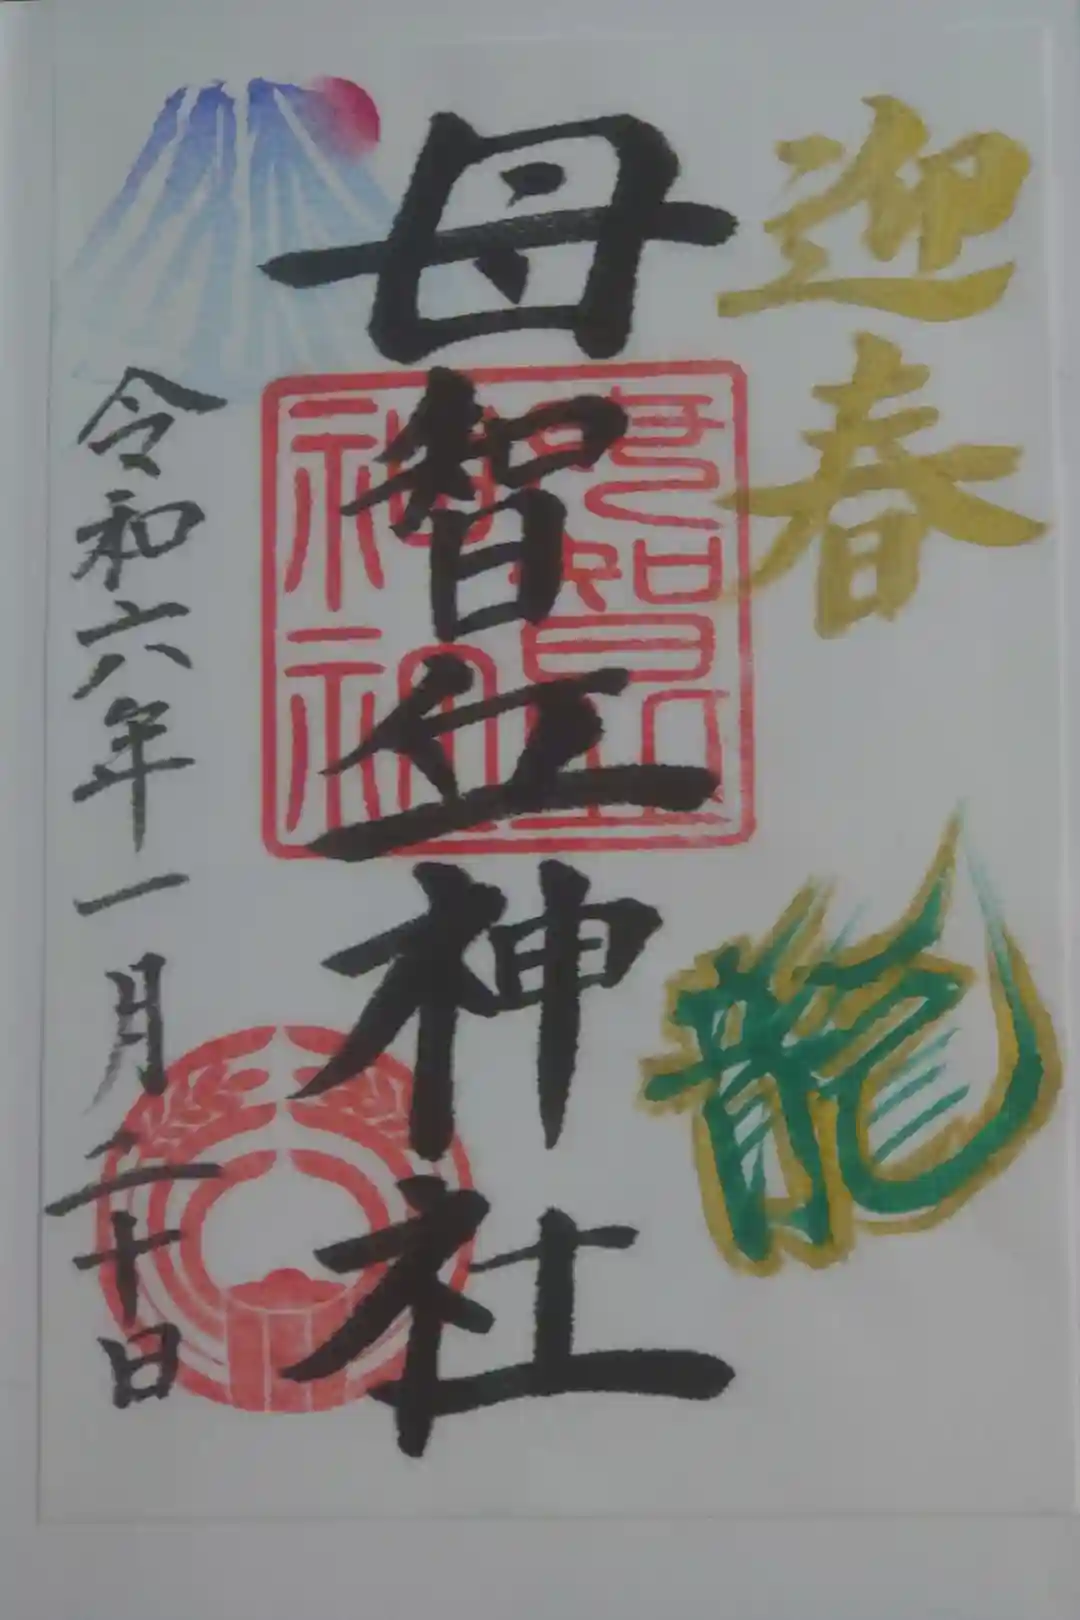 迎春
龍
母智丘神社
母智丘
神社
令和六年一月二十日